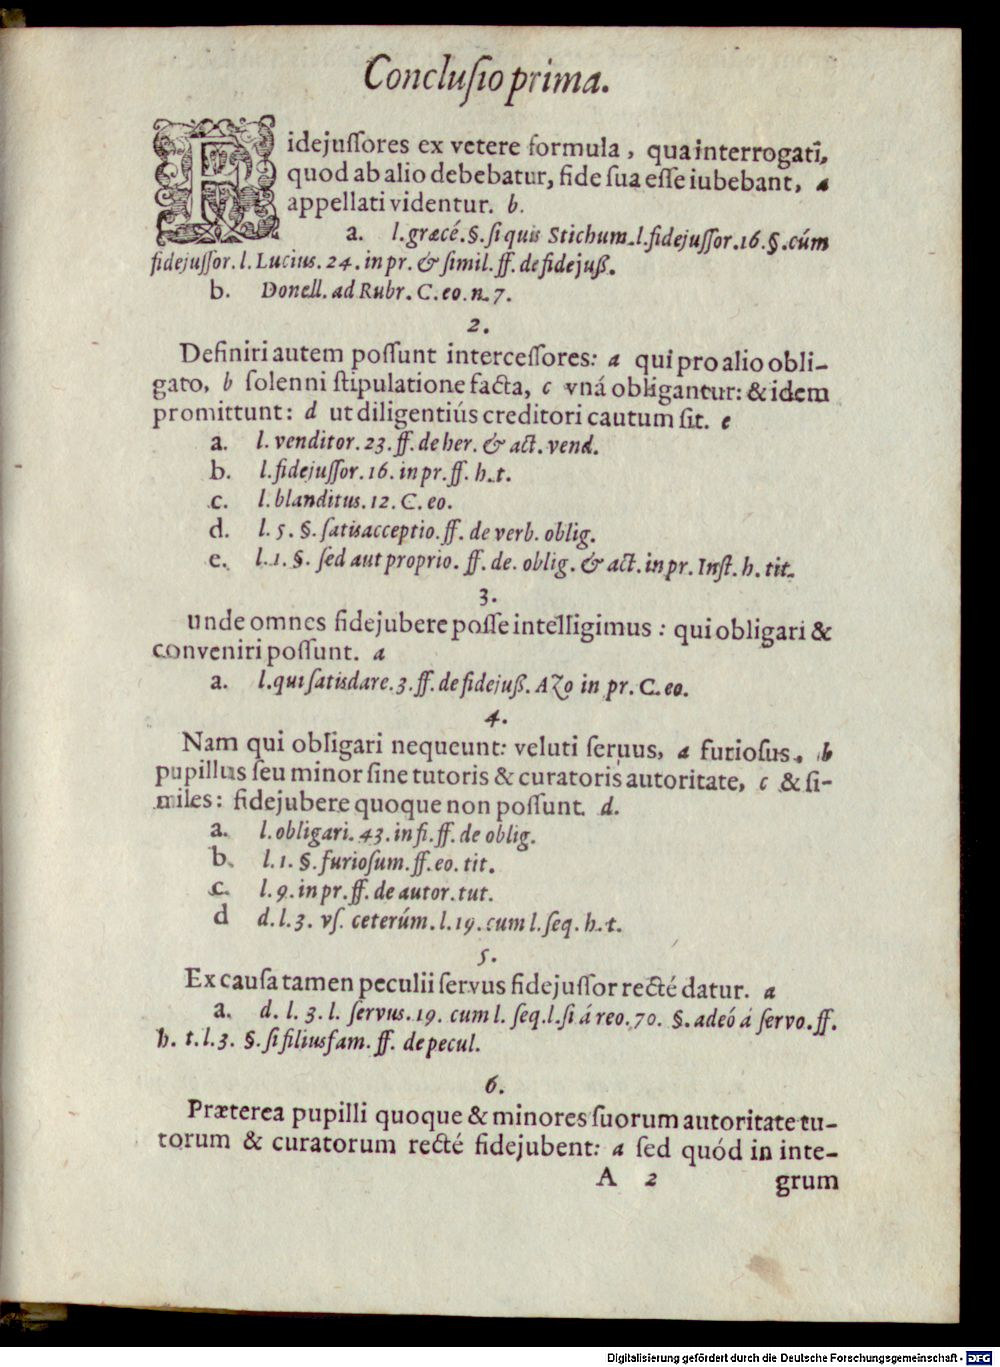 Concluſio prima.
Fidejuſſores ex vetere formula, qua interrogati,
quod ab alio debebatur, fide ſua eſſe iubebant, a
appellati videntur. b.
a. l. græcé. §. ſi quis Stichum. l. fidejuſſor. 16. §. cúm
fidejuſſor. l. Lucius. 24. in pr. & ſimil. ff. de fidejuß.
b. Donell. ad Rubr. C. eo. n. 7.
2.
Definiri autem poſſunt interceſſores: a qui pro alio obli-
gato, b ſolenni ſtipulatione facta, c vná obligantur: & idem
promittunt: d ut diligentiús creditori cautum ſit. e
a. l. venditor. 23. ff. de her. & act. vend.
b. l. fidejuſſor. 16. in pr. ff. h. t.
c. l. blanditus. 12. C. eo.
d. l. 5. §. ſatisacceptio. ff. de verb. oblig.
e. l. 1. §. ſed aut proprio. ff. de. oblig. & act. in pr. Inſt. h. tit.
3.
unde omnes fidejubere poſſe intelligimus: qui obligari &
conveniri poſſunt. a
a. l. qui ſatisdare. 3. ff. de fidejuß. Azo in pr. C. eo.
4.
Nam qui obligari nequeunt: veluti ſeruus, a furioſus, b
pupillus ſeu minor ſine tutoris & curatoris autoritate, c & ſi-
miles: fidejubere quoque non poſſunt. d.
a. l. obligari. 43. in fi. ff. de oblig.
b. l. 1. §. furioſum. ff. eo. tit.
c. l. 9. in pr. ff. de autor. tut.
d d. l. 3. vſ. ceterúm. l. 19. cum l. ſeq. h. t.
5.
Ex cauſa tamen peculii ſervus fidejuſſor recté datur. a
a. d. l. 3. l. ſervus. 19. cum l. ſeq. l. ſi á reo. 70. §. adeó á ſervo. ff.
h. t. l. 3. §. ſi filiusfam. ff. de pecul.
6.
Præterea pupilli quoque & minores ſuorum autoritate tu-
torum & curatorum recté fidejubent: a ſed quód in inte-
A 2 grum
Digitalisierung gefördert durch die Deutsche Forschungsgemeinschaft - DFG